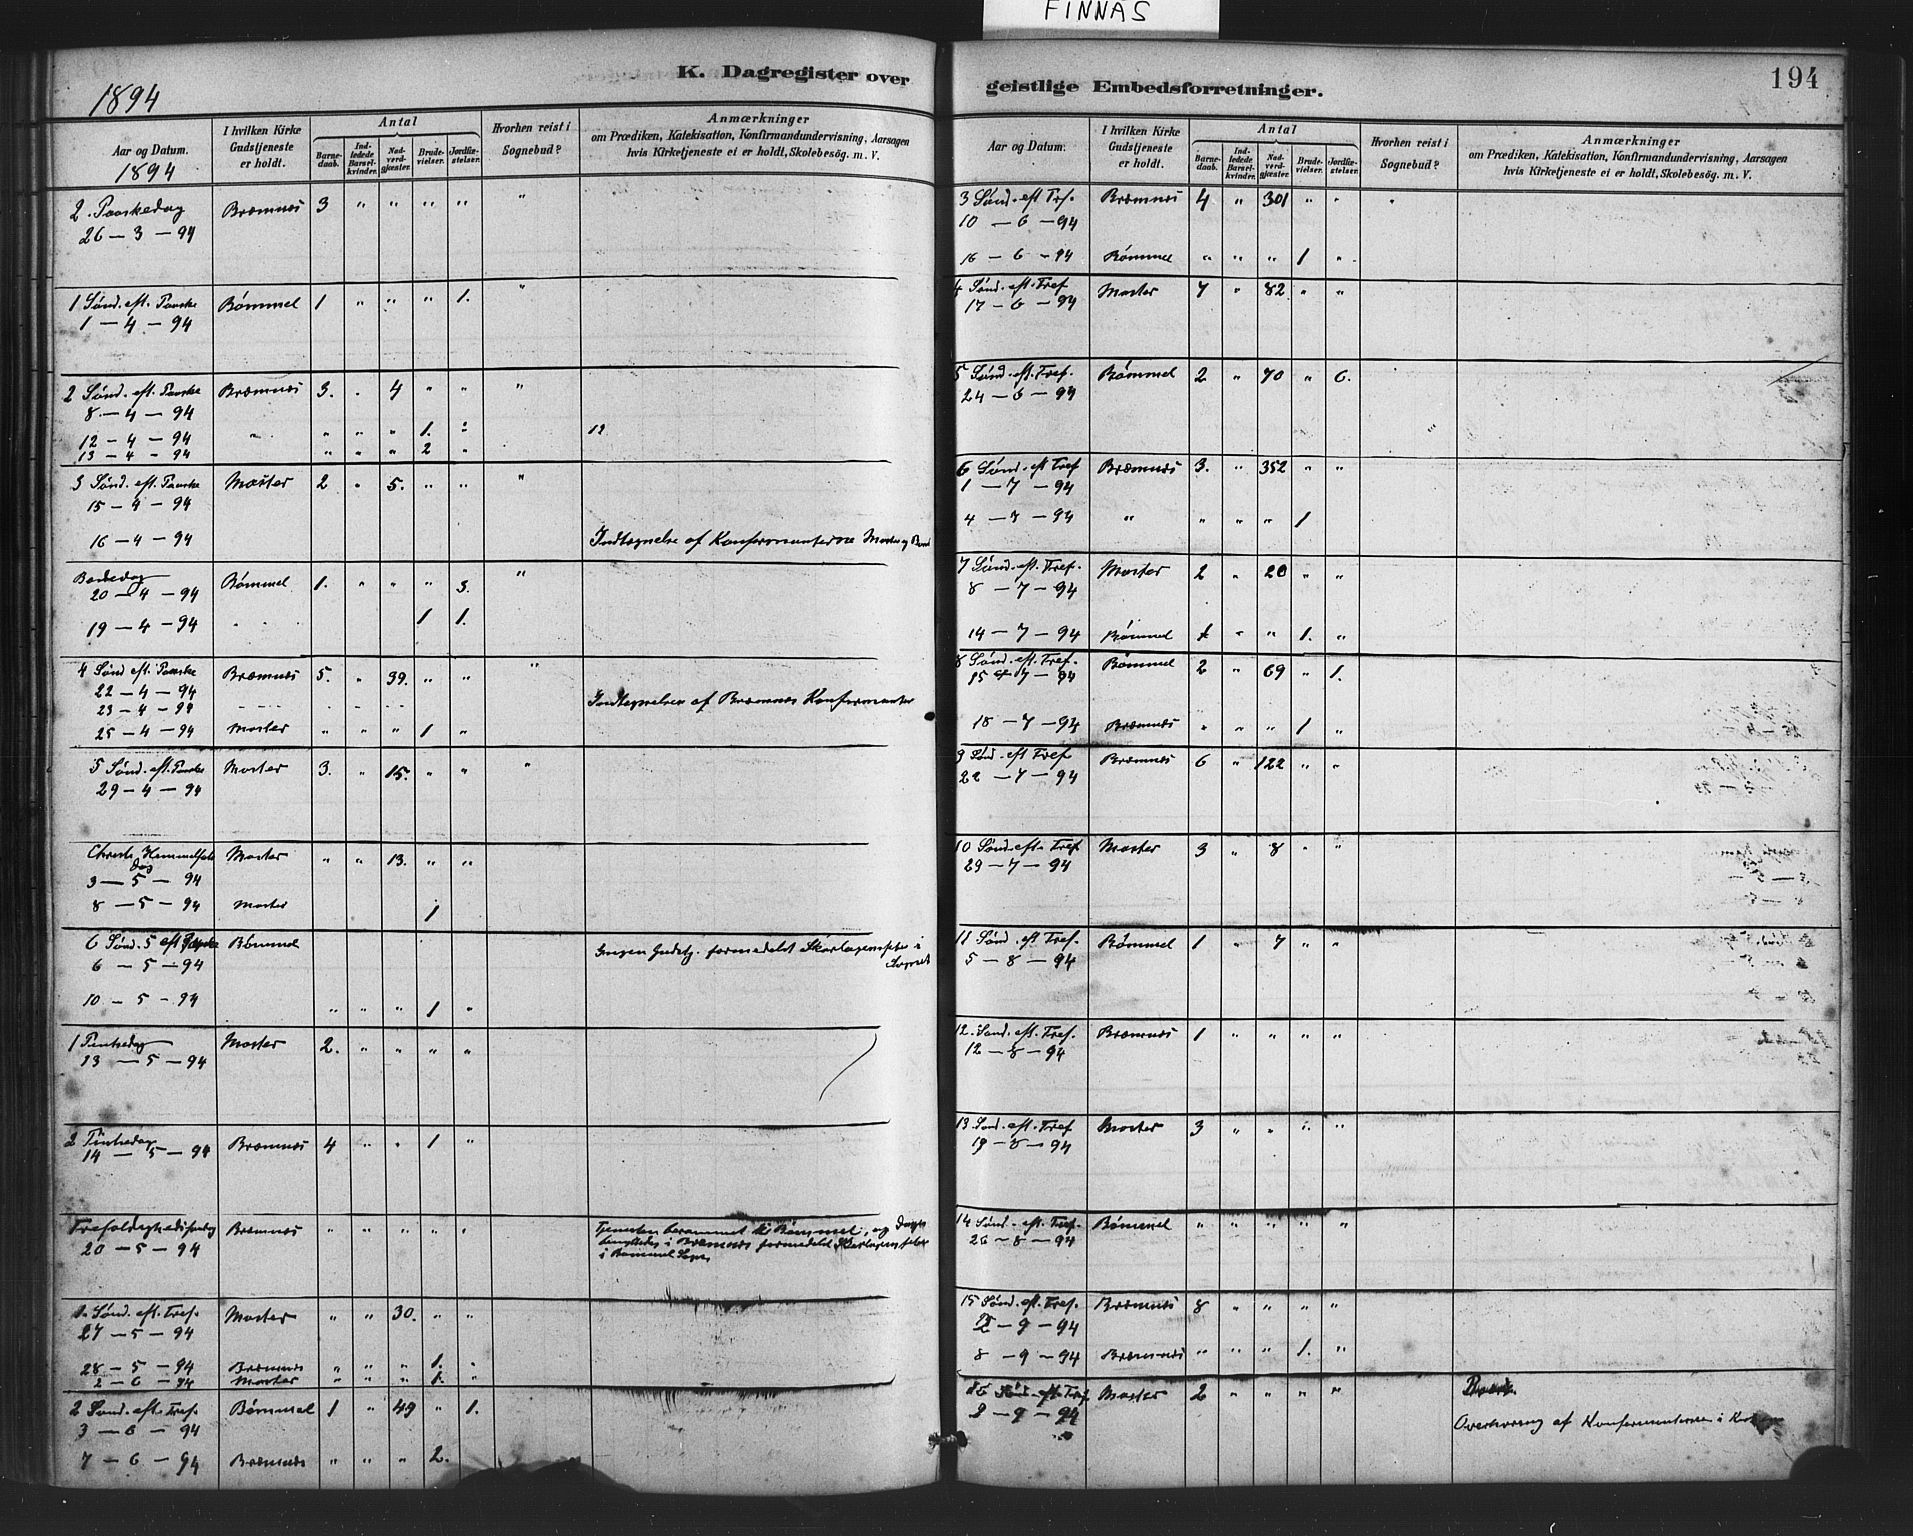 FINNÅS
K. Dagregister over
1894
Aar og Datum.
1894
I hvilken Kirke Gudstjeneste er holdt.
Antal
Barne-daab.
Ind-ledede Barsel-kvinder.
Nad-verd-gjæster.
Brude-vielser.
Jordfæ-stelser.
Hvorhen reist i Sognebud?
Anmærkninger
om Prædiken, Katekisation, Konfirmandundervisning, Aarsagen
hvis Kirketjeneste ei er holdt, Skolebesög. m. V.
2. Paaskedag Bræmnæs 3 " " " " "
26 – 3 – 94
1 Sønd. eft. Paaske Bømmel 1 " " " 1. "
1 – 4 – 94
2 Sønd. eft. Paaske Bræmnæs 3. " 4 " " "
8 – 4 – 94
12 – 4 – 94 " " " " 1. " 12
13 – 4 – 94 " " " 2 "
3 Sønd. eft. Paaske Moster 2 " 5. " " "
15 – 4 – 94
16 – 4 – 94 Indtegnelse af Konfirmanterne Moster og
Bededag Bømmel 1. " " " 3. "
20 – 4 – 94
19 – 4 – 94 " " 1 1.
4 Sønd eft. Paaske Bræmnæs 5. " 39. " " "
22 – 4 – 94
23 – 4 – 94 Indtegnelse af Bræmnæs Konfirmanter
25 – 4 – 94 Moster " " " 1 "
5 Sønd. eft. Paaske Moster 3. " 15. " " "
29 – 4 – 94
Christi Himmelfarts Moster " " 13. " "
dag
3 – 5 – 94
8 – 5 – 94 Moster 1
6 Sønd. eft Paaske Bømmel Ingen Gudstj. formedelst Skarlagensfeber i
6 – 5 – 94 Sognet
10 – 5 – 94 " " " 1 "
1 Pintsedag Moster 2. " " " "
13 – 5 – 94
2 Pintsedag Bræmnæs 4 " " 1 "
14 – 5 – 94
Trefoldighedssøndag Bræmnæs " " " " " Tjenesten berammet til Bømmel, og
20 – 5 – 94 i Bræmnæs formedelst Skarlagensfeber
i Bømmel Sogn
1. Sønd. eft. Tref. Moster " " 30. " "
27 – 5 – 94
28 – 5 – 94 Bræmnæs " " " 1. "
2 – 6 – 94 Moster " " " 1. "
2 Sønd. eft. Tref. Bømmel 1 " 49 " 1.
3 – 6 – 94
7 – 6 – 94 Bræmnæs " " " 2.
geistlige Embedsforretninger.
194
Aar og Datum:
I hvilken Kirke Gudstjeneste er holdt.
Antal
Barne-daab.
Ind-ledede Barsel-kvinder.
Nad-verd-gjæster.
Brude-vielser.
Jordfæ-stelser.
Hvorhen reist i Sognebud?
Anmærkninger
om Prædiken, Katekisation, Konfirmandundervisning, Aarsagen
hvis Kirketjeneste ei er holdt, Skolebesög. m. V.
3 Sønd. eft Tref. Bræmnæs 4 " 301 " " "
10 – 6 – 94
16 – 6 – 94 Bømmel " " " 1 "
4 Sønd. eft. Tref Moster 7 " 82 " "
17 – 6 – 94
5 Sønd. eft. Tref. Bømmel 2 " 70 " 6.
24 – 6 – 94
6 Sønd. eft Tref Bræmnæs 3. " 352 " "
1 – 7 – 94
4 – 7 – 94 " " " " 1
7 Sønd. eft. Tref. Moster 2 " 20 " "
8 – 7 – 94
14 – 7 – 94 Bømmel 1 " " 1. "
8 Sønd. eft. Tref. Bømmel 2 " 69 " 1.
15 – 7 – 94
18 – 7 – 94 Bræmnæs " " " 1 "
9 Sønd. eft Tref Bræmnæs 6 " 122 " "
22 – 7 – 94
10 Sønd. eft. Tref Moster 3 " 8 " "
29 – 7 – 94
11 Sønd. eft Tref. Bømmel 1 " 7 " "
5 – 8 – 94
12. Sønd. eft. Tref. Bræmnæs 1 " " " "
12 – 8 – 94
13 Sønd. eft Tref Moster 3 " " " "
19 – 8 – 94
14 Sønd. eft Tref. Bømmel " " " " "
26 – 8 – 94
15 Sønd. eft. Tref. Bræmnæs 8 " " " "
2 – 9 – 94
8 – 9 – 94 Bræmnæs " " " 1. "
Sønd eft Tref. Moster 2 " " " "
9 – 94 Overhøring af Konfirmanterne i